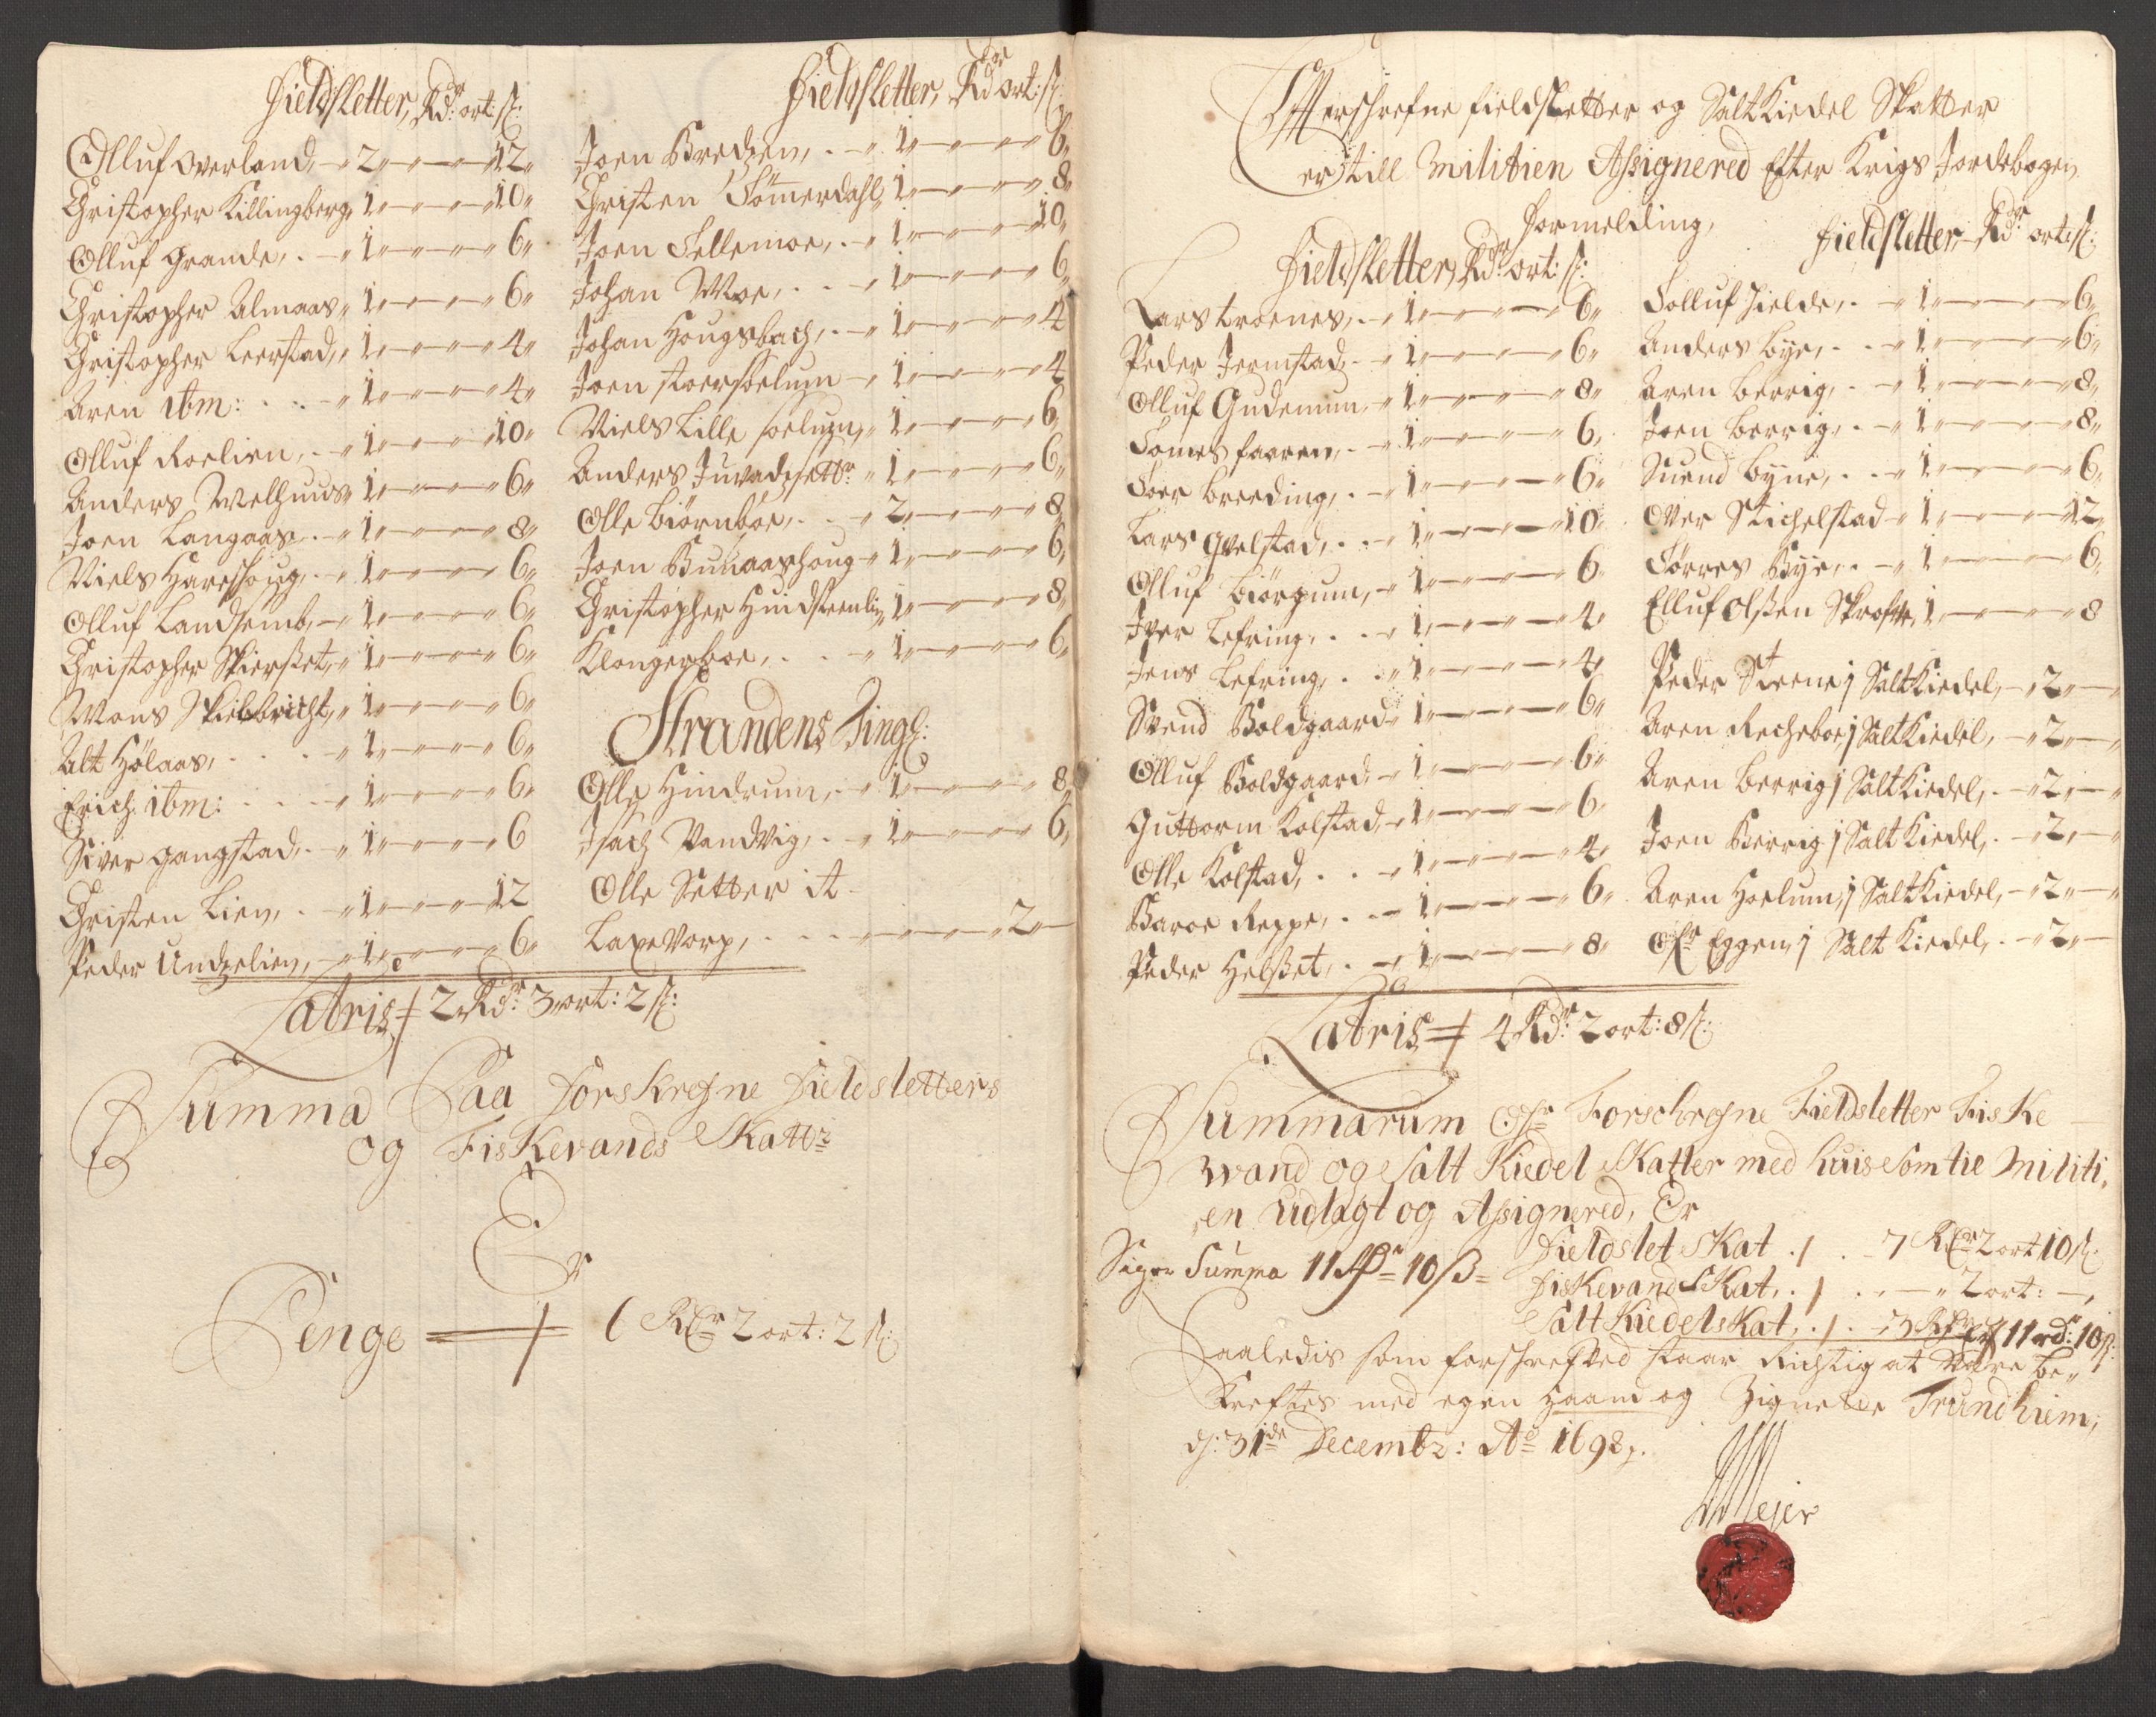 Fieldsletter, Rdr: ort: s:
Olluf Overland, 2 12
Christopher Killingberg, 1 10
Olluf Grande, 1 6
Christopher Almaas, 1 6
Christopher Leerstad, 1 4
Aren ibm: 1 4
Olluf Roelien, 1 10
Anders Melhuus 1 6
Joen Langaas, 1 8
Niels Hareshoug, 1 6
Olluf Landsemb, 1 6
Christopher Skierset, 1 6
Mons Skielbricht, 1 6
Alt Hölaas, 1 6
Erich ibm: 1 6
Siver Gangstad, 1 6
Christen Lien, 1 12
Peder Undzelien, 1 6
Fieldsletter, Rdr ort: s:
Joen Bredzen, 1 6
Christen Sömerdahl, 1 8
Joen Fellemoe, 1 10
Johan Moe, 1 6
Johan Hougsbach, 1 4
Joen Stoersoelum 1 4
Niels Lille Soelum, 1 6
Anders Juvadsettr: 1 6
Olle Biörnböe, 2 8
Joen Bunaashoug 1 6
Christopher Huidsteenlien, 1 8
Klongerboe, 1 6
Strandens Tingl:
Olle Hindrum, 1 8
Isach Vandvig, 1 6
Olle Setter it
Laxevorp, 2
Latris 2 Rdr: 3 ort: 2 s:
Summa Paa Forskrefne Fieldsletters
og Fiskevands Skattr
Er
Penge 6 Rdr 2 ort: 2 s:
Efterschrefne Fieldsletter og Saltkiedel Skatter
er till Militien Assignered Efter Krigs Jordebogen
Formelding,
Fieldsletter, Rdr: ort: s:
Lars Kroenes, 1 6
Peder Jermstad, 1 6
Olluf Gudemun, 1 8
Tomes Faaren, 1 6
Toer Breeding, 1 6
Lars Qvelstad, 1 10
Olluf Biörgum, 1 6
Iver Lefring, 1 4
Jens Lefring, 1 4
Svend Boldgaard 1 6
Olluf Boldgaard, 1 6
Guttorm Kolstad, 1 6
Olle Kolstad, 1 4
Baroe Reppe, 1 6
Peder Helset, 1 8
Fieldsletter, Rdr ort: s:
Tolluf Hielde, 1 6
Anders Bye, 1 6
Aren Berrig, 1 8
Joen Berrig, 1 8
Suend Byne, 1 6
Over Stichelstad 1 12
Törres Bye, 1 6
Elluf Olsen Skrofve, 1 8
Peder Steene j Saltkiedel, 2
Aren Recheboe j Saltkiedel, 2
Aren Berrig j Saltkiedel, 2
Joen Berrig j Saltkiedel, 2
Aren Hoelum, j Saltkiedel, 2
Ofr Eggen, j Saltkiedel, 2
Latris 4 Rdr: 2 ort: 8 s:
Summarum Ofr Forschrefne Fieldsletter Fiske
Wand og Salt Kiedel Skatter med huis som til Militi,
en udlagt og Assignered, Er
Fieldslet Skat . / . 7 Rdr 2 ort 10 s:
Siger Summa 11 Rdr 10 s
Fiskevand Skat, . / . 2 ort:
Salt Kiedelskat, . / . 3 Rdr er 11 rd: 10 s:
Saaledis som forschrefved staar Richtig at være be„
kreftes med egen Haand og Zignete Trundhiem,
d: 31de Decembr: Ao 1698.
Mejer